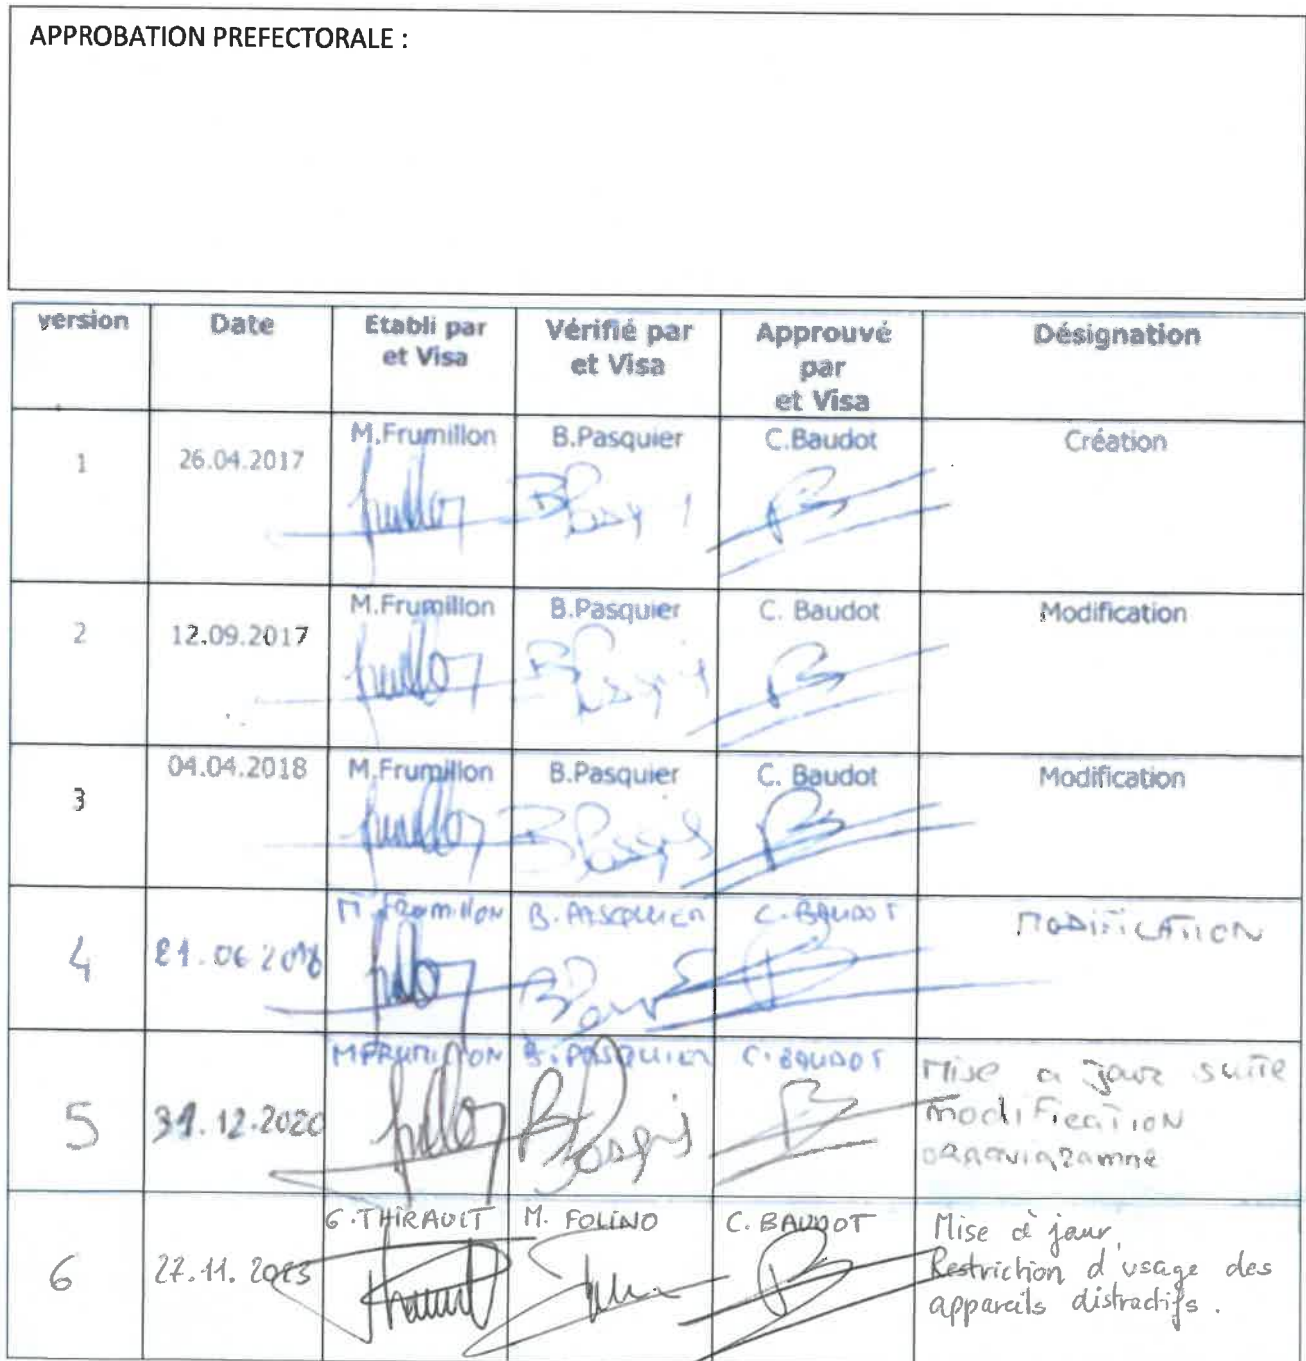 APPROBATION PREFECTORALE :
version
Date
Etabli par
et Visa
Vérifié par
et Visa
Approuvé
par
et Visa
Désignation
1
26.04.2017
M.Frumillon
B.Pasquier
C.Baudot
Création
2
12.09.2017
M.Frumillon
B.Pasquier
C. Baudot
Modification
3
04.04.2018
M.Frumillon
B.Pasquier
C. Baudot
Modification
4
21.06.2018
M. FRumillON
B. PASQUIER
C. BAUDOT
MODIFICATION
5
31.12.2020
M FRUMILLON
B. PASQUIER
C. BAUDOT
Mise a jour suite
modification
6
27.11.
G. THIRAULT
M. FOLINO
C. BAUDOT
Mise à jour,
Restriction d'usage des
appareils distractifs.